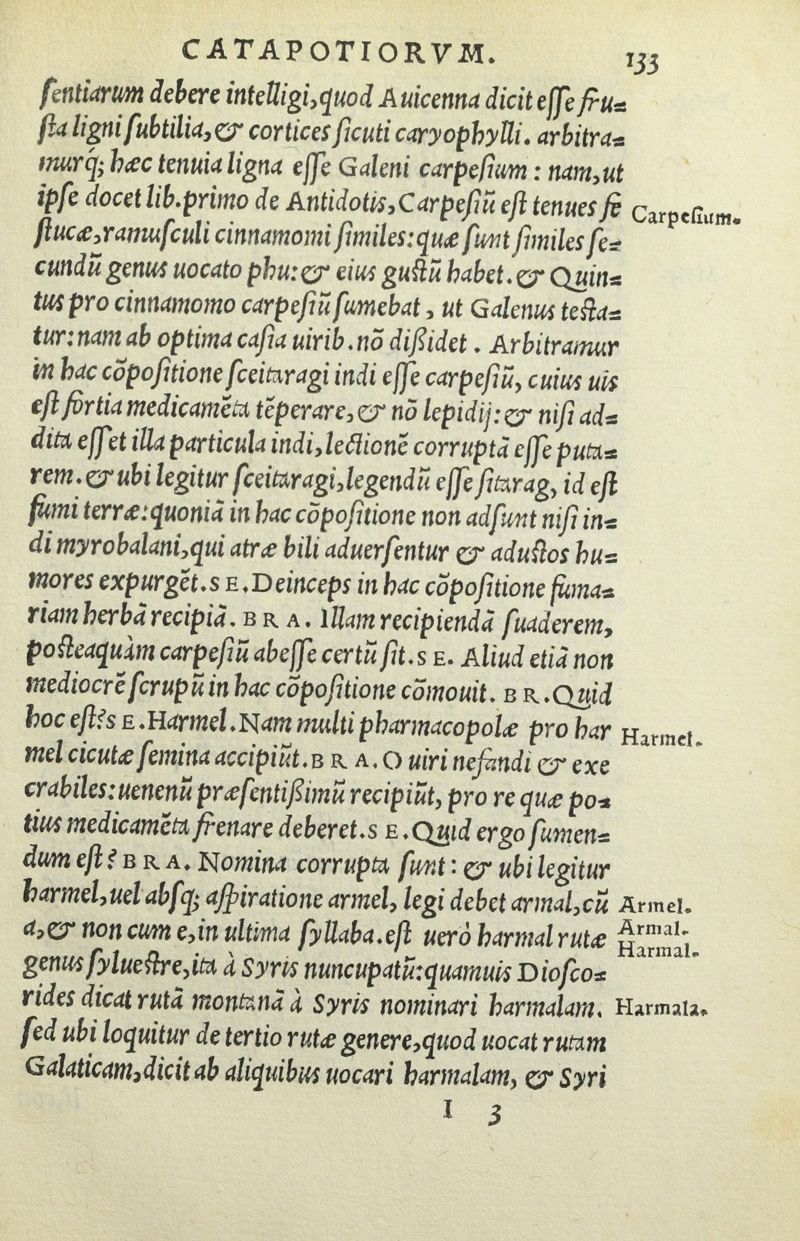 CATAPOTIORVM. 133
ſentiarum debere intelligi, quod Auicenna dicit eſſe fru=
ſta ligni ſubtilia, & cortices ſicuti caryophylli. arbitra=
murq; hæc tenuia ligna eſſe Galeni carpeſium: nam, ut
ipſe docet lib. primo de Antidotis, Carpeſiū eſt tenues fe
Carpeſium.
ſtucæ, ramuſculi cinnamomi ſimiles: quæ ſunt ſimiles ſe=
cundū genus uocato phu: & eius guſtū habet. & Quin=
tus pro cinnamomo carpeſiū ſumebat, ut Galenus teſta=
tur: nam ab optima caſia uirib. nō dißidet. Arbitramur
in hac cōpoſitione ſceitaragi indi eſſe carpeſiū, cuius uis
eſt fortia medicamēta tēperare, & nō lepidij: & niſi ad=
dita eſſet illa particula indi, lectionē corruptā eſſe puta=
rem. & ubi legitur ſceitaragi, legendū eſſe ſitarag, id eſt
fumi terræ: quoniā in hac cōpoſitione non adſunt niſi in=
di myrobalani, qui atræ bili aduerſentur & aduſtos hu=
mores expurgēt. S E. Deinceps in hac cōpoſitione fuma=
riam herbā recipiā. B R A. Illam recipiendā ſuaderem,
poſteaquàm carpeſiū abeſſe certū ſit. S E. Aliud etiā non
mediocrē ſcrupū in hac cōpoſitione cōmouit. B R. Quid
hoc eſt? S E. Harmel. Nam multi pharmacopolæ pro har
Harmel.
mel cicutæ ſemina accipiūt. B R A. O uiri nefandi & exe
crabiles: uenenū præſentißimū recipiūt, pro re quæ po=
tius medicamēta frenare deberet. S E. Quid ergo ſumen=
dum eſt? B R A. Nomina corrupta ſunt: & ubi legitur
harmel, uel abſq; aſpiratione armel, legi debet armal, cū
Armel.
a, & non cum e, in ultima ſyllaba. eſt uerò harmal rutæ
Armal.
Harmal.
genus ſylueſtre, ita à Syris nuncupatū: quamuis Dioſco=
rides dicat rutā montanā à Syris nominari harmalam.
Harmala.
ſed ubi loquitur de tertio rutæ genere, quod uocat rutam
Galaticam, dicit ab aliquibus uocari harmalam, & Syri
I 3